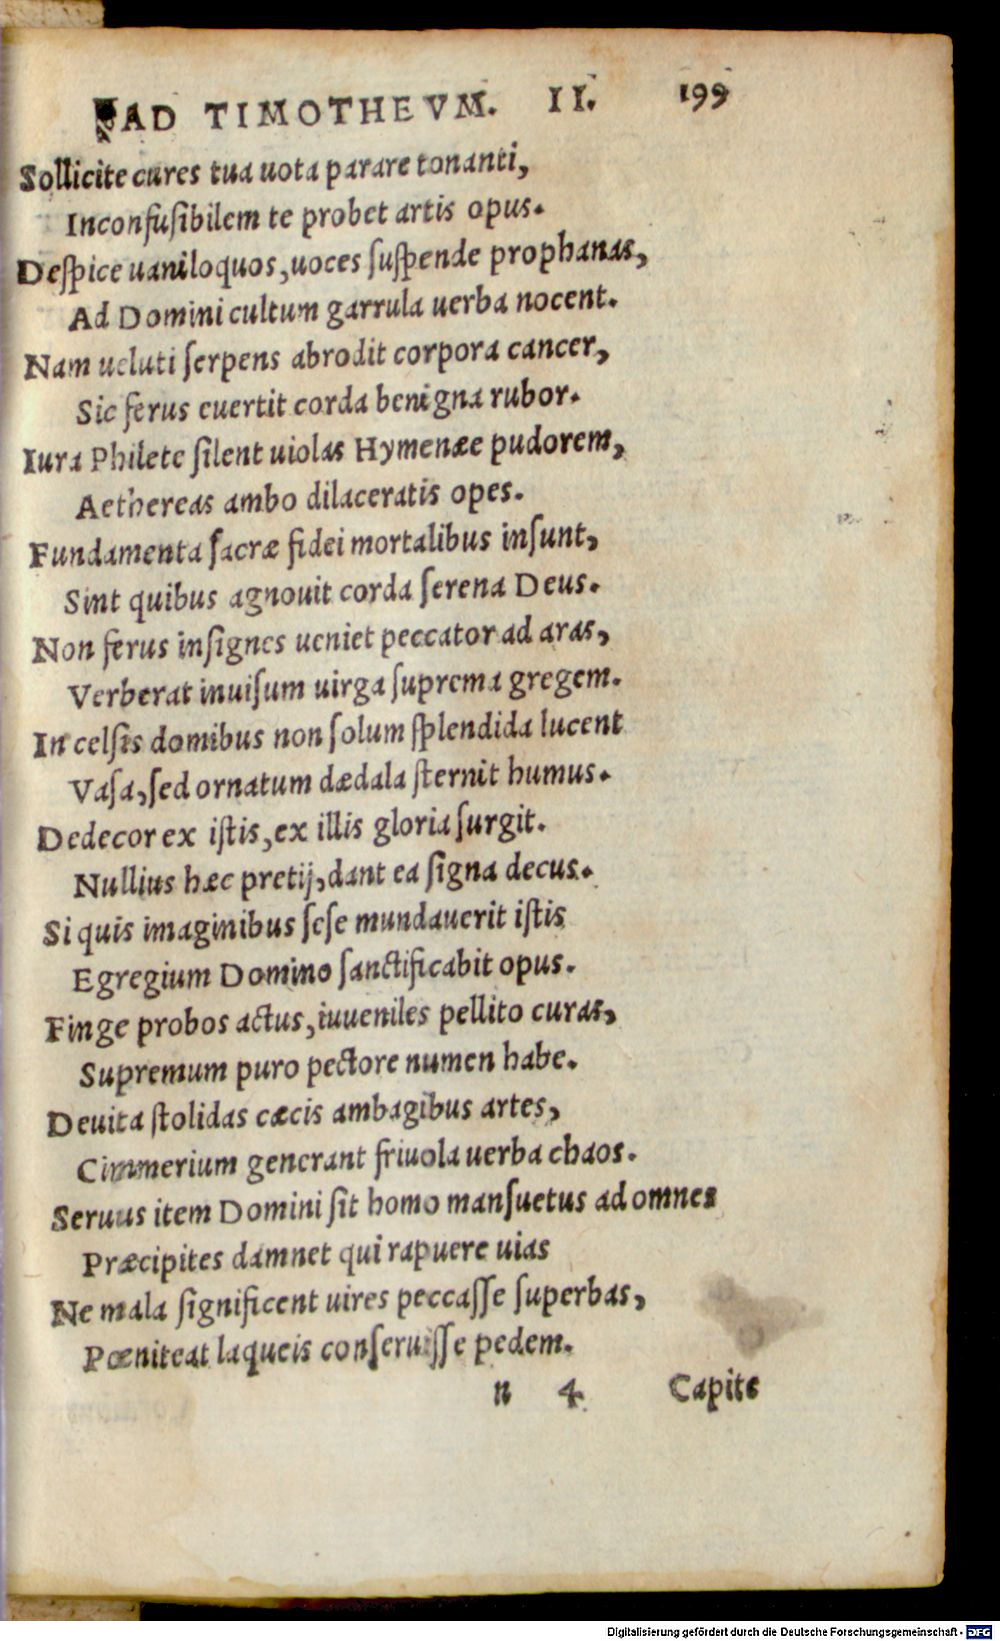 AD TIMOTHEVM. II. 199
Sollicite cures tua uota parare tonanti,
Inconfuſibilem te probet artis opus.
Deſpice uaniloquos, uoces ſuſpende prophanas,
Ad Domini cultum garrula uerba nocent.
Nam ueluti ſerpens abrodit corpora cancer,
Sic ferus euertit corda benigna rubor.
Iura Philete ſilent uiolas Hymenæe pudorem,
Aethereas ambo dilaceratis opes.
Fundamenta ſacræ fidei mortalibus inſunt,
Sint quibus agnouit corda ſerena Deus.
Non ferus inſignes ueniet peccator ad aras,
Verberat inuiſum uirga ſuprema gregem.
In celſis domibus non ſolum ſplendida lucent
Vaſa, ſed ornatum dædala ſternit humus.
Dedecor ex iſtis, ex illis gloria ſurgit.
Nullius hæc pretij, dant ea ſigna decus.
Si quis imaginibus ſeſe mundauerit iſtis
Egregium Domino ſanctificabit opus.
Finge probos actus, iuueniles pellito curas,
Supremum puro pectore numen habe.
Deuita ſtolidas cæcis ambagibus artes,
Cimmerium generant friuola uerba chaos.
Seruus item Domini ſit homo manſuetus ad omnes
Præcipites damnet qui rapuere uias
Ne mala ſignificent uires peccaſſe ſuperbas,
Pœniteat laqueis conſeruiſſe pedem.
n 4 Capite
Digitalisierung gefördert durch die Deutsche Forschungsgemeinschaft - DFG